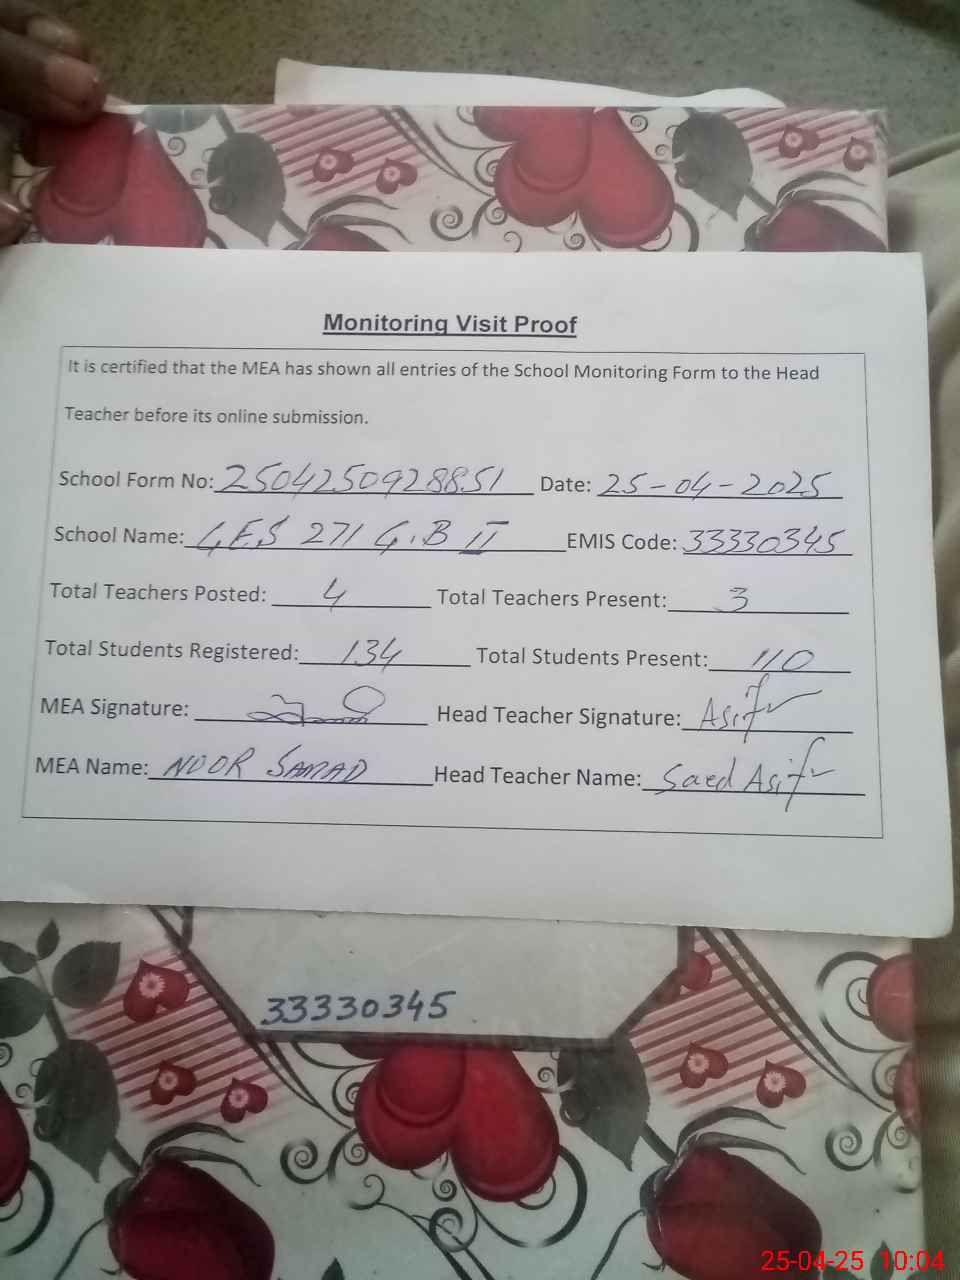 Monitoring Visit Proof
It is certified that the MEA has shown all entries of the School Monitoring Form to the Head
Teacher before its online submission.
School Form No: 2504250928851 Date: 25-04-2025
School Name: G.E.S 271 G.B II EMIS Code: 33330345
Total Teachers Posted: 4 Total Teachers Present: 3
Total Students Registered: 134 Total Students Present: 110
MEA Signature: Head Teacher Signature: Asif
MEA Name: NOOR SAMAD Head Teacher Name: Saed Asif
33330345
25-04-25 10:04